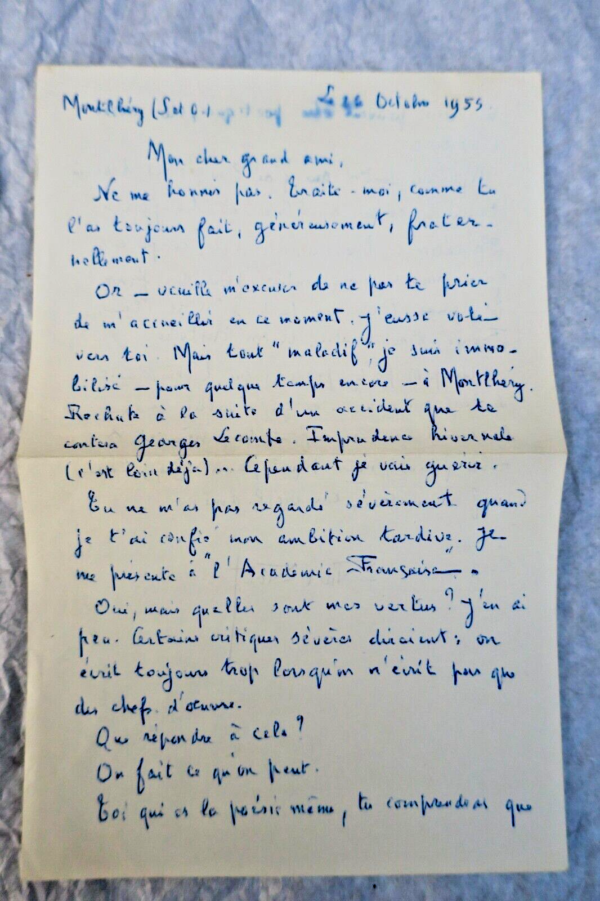 Montlhéry (S et O.) Le Octobre 1955.
Mon cher grand ami,
Ne me honnis pas. Traite-moi, comme tu
l'as toujours fait, généreusement, frater-
nellement.
Or — veuille m'excuser de ne pas te prier
de m'accueillir en ce moment. J'eusse volé
vers toi. Mais tout "maladif", je suis immo-
bilisé — pour quelque temps encore — à Montlhéry.
Rechute à la suite d'un accident que te
contera Georges Lecomte. Imprudence hivernale
(c'est loin déjà)... Cependant je vais guérir.
Tu ne m'as pas regardé sévèrement quand
je t'ai confié mon ambition tardive. Je
me présente à "l'Académie Française".
Oui, mais quelles sont mes vertus ? J'en ai
peu. Certains critiques sévères diraient : on
écrit toujours trop lorsqu'on n'écrit pas que
des chefs d'œuvre.
Que répondre à cela ?
On fait ce qu'on peut.
Toi qui es la poésie même, tu comprendras que